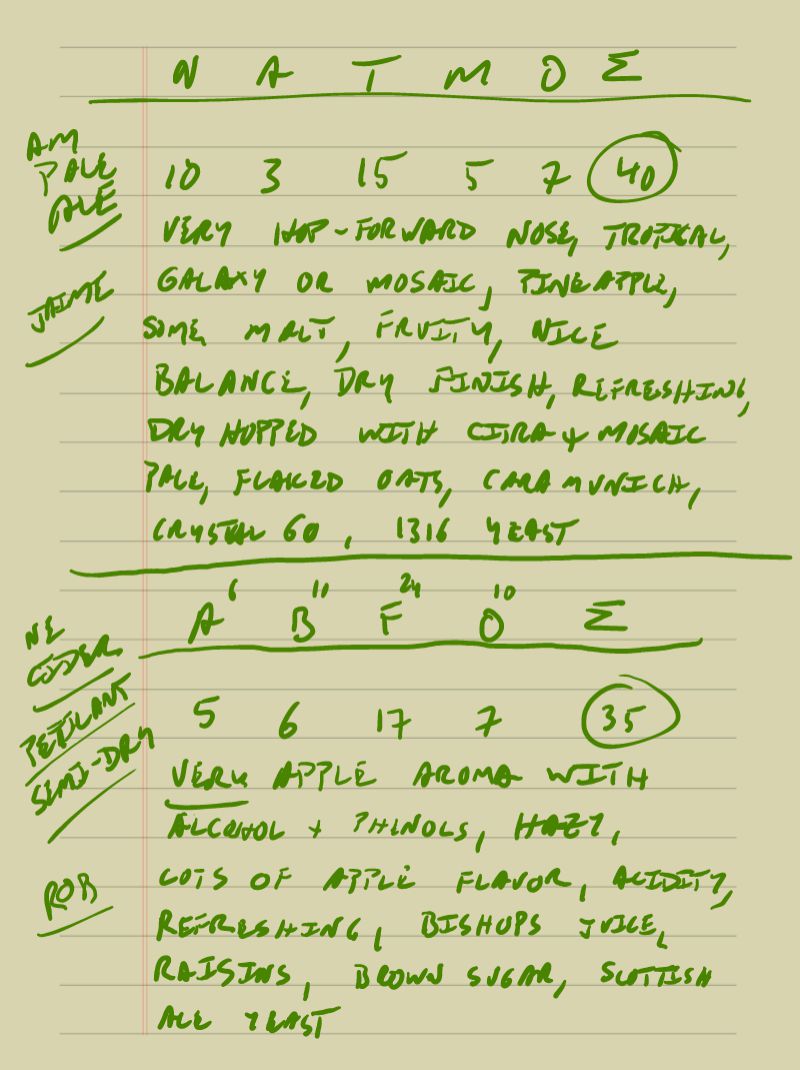 N A T M O Σ
AM
PALE
ALE
10 3 15 5 7 40
VERY HOP-FORWARD NOSE, TROPICAL,
JAIME
GALAXY OR MOSAIC, PINEAPPLE,
SOME MALT, FRUITY, NICE
BALANCE, DRY FINISH, REFRESHING,
DRY HOPPED WITH CITRA + MOSAIC
PALE, FLAKED OATS, CARAMUNICH,
CRYSTAL 60, 1316 YEAST
A 6 B 11 F 24 O 10 Σ
NE
CIDER
PETILANT
SEMI-DRY
5 6 17 7 35
VERY APPLE AROMA WITH
ALCOHOL + PHINOLS, HAZY,
ROB
LOTS OF APPLE FLAVOR, ACIDITY,
REFRESHING, BISHOPS JUICE,
RAISINS, BROWN SUGAR, SCOTTISH
ALE YEAST